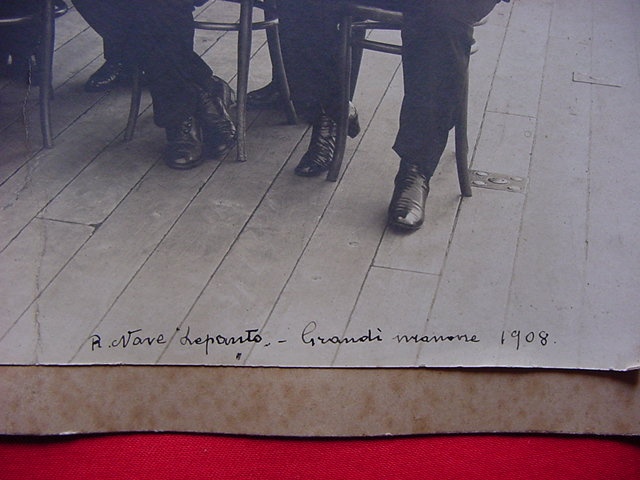 R. Nave "Lepanto" - Grandi manovre 1908.